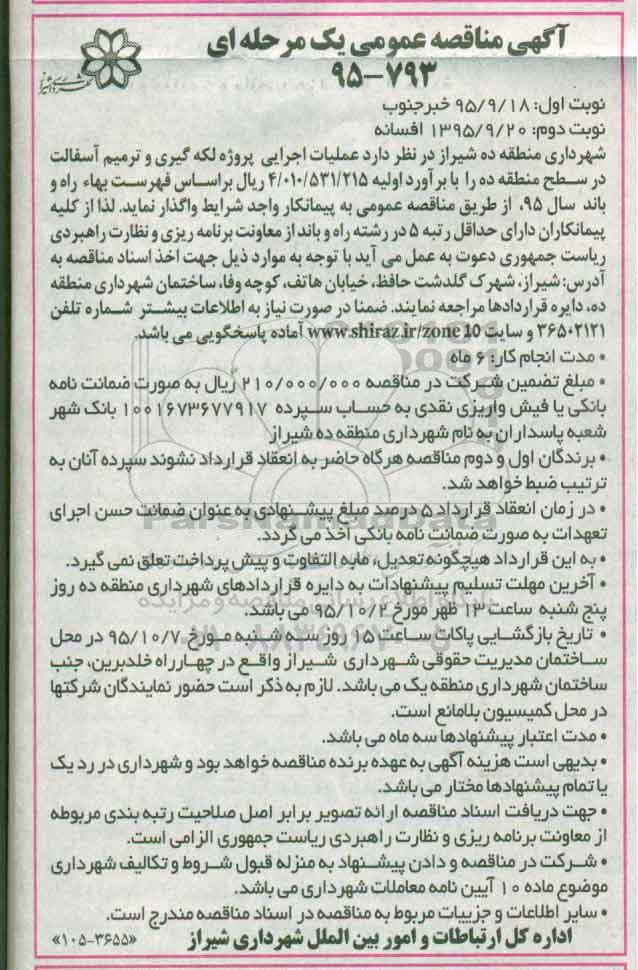 آگهی مناقصه عمومی یک مرحله ای
۹۵-۷۹۳
شهرداری شیراز
نوبت اول: ۹۵/۹/۱۸ خبرجنوب
نوبت دوم: ۱۳۹۵/۹/۲۰ افسانه
شهرداری منطقه ده شیراز در نظر دارد عملیات اجرایی پروژه لکه گیری و ترمیم آسفالت
در سطح منطقه ده را با برآورد اولیه ۴/۰۱۰/۵۳۱/۲۱۵ ریال براساس فهرست بهاء راه و
باند سال ۹۵، از طریق مناقصه عمومی به پیمانکار واجد شرایط واگذار نماید. لذا از کلیه
پیمانکاران دارای حداقل رتبه ۵ در رشته راه و باند از معاونت برنامه ریزی و نظارت راهبردی
ریاست جمهوری دعوت به عمل می آید با توجه به موارد ذیل جهت اخذ اسناد مناقصه به
آدرس: شیراز، شهرک گلدشت حافظ، خیابان هاتف، کوچه وفا، ساختمان شهرداری منطقه
ده، دایره قراردادها مراجعه نمایند. ضمنا در صورت نیاز به اطلاعات بیشتر شماره تلفن
۳۶۵۰۲۱۲۱ و سایت www.shiraz.ir/zone 10 آماده پاسخگویی می باشد.
• مدت انجام کار: ۶ ماه
• مبلغ تضمین شرکت در مناقصه ۲۱۰/۰۰۰/۰۰۰ ریال به صورت ضمانت نامه
بانکی یا فیش واریزی نقدی به حساب سپرده ۱۰۰۱۶۷۳۶۷۷۹۱۷ بانک شهر
شعبه پاسداران به نام شهرداری منطقه ده شیراز
• برندگان اول و دوم مناقصه هرگاه حاضر به انعقاد قرارداد نشوند سپرده آنان به
ترتیب ضبط خواهد شد.
• در زمان انعقاد قرارداد ۵ درصد مبلغ پیشنهادی به عنوان ضمانت حسن اجرای
تعهدات به صورت ضمانت نامه بانکی اخذ می گردد.
• به این قرارداد هیچگونه تعدیل، مابه التفاوت و پیش پرداخت تعلق نمی گیرد.
• آخرین مهلت تسلیم پیشنهادات به دایره قراردادهای شهرداری منطقه ده روز
پنج شنبه ساعت ۱۳ ظهر مورخ ۹۵/۱۰/۲ می باشد.
• تاریخ بازگشایی پاکات ساعت ۱۵ روز سه شنبه مورخ ۹۵/۱۰/۷ در محل
ساختمان مدیریت حقوقی شهرداری شیراز واقع در چهارراه خلدبرین، جنب
ساختمان شهرداری منطقه یک می باشد. لازم به ذکر است حضور نمایندگان شرکتها
در محل کمیسیون بلامانع است.
• مدت اعتبار پیشنهادها سه ماه می باشد.
• بدیهی است هزینه آگهی به عهده برنده مناقصه خواهد بود و شهرداری در رد یک
یا تمام پیشنهادها مختار می باشد.
• جهت دریافت اسناد مناقصه ارائه تصویر برابر اصل صلاحیت رتبه بندی مربوطه
از معاونت برنامه ریزی و نظارت راهبردی ریاست جمهوری الزامی است.
• شرکت در مناقصه و دادن پیشنهاد به منزله قبول شروط و تکالیف شهرداری
موضوع ماده ۱۰ آیین نامه معاملات شهرداری می باشد.
• سایر اطلاعات و جزییات مربوط به مناقصه در اسناد مناقصه مندرج است.
اداره کل ارتباطات و امور بین الملل شهرداری شیراز
«۱۰۵-۳۶۵۵»